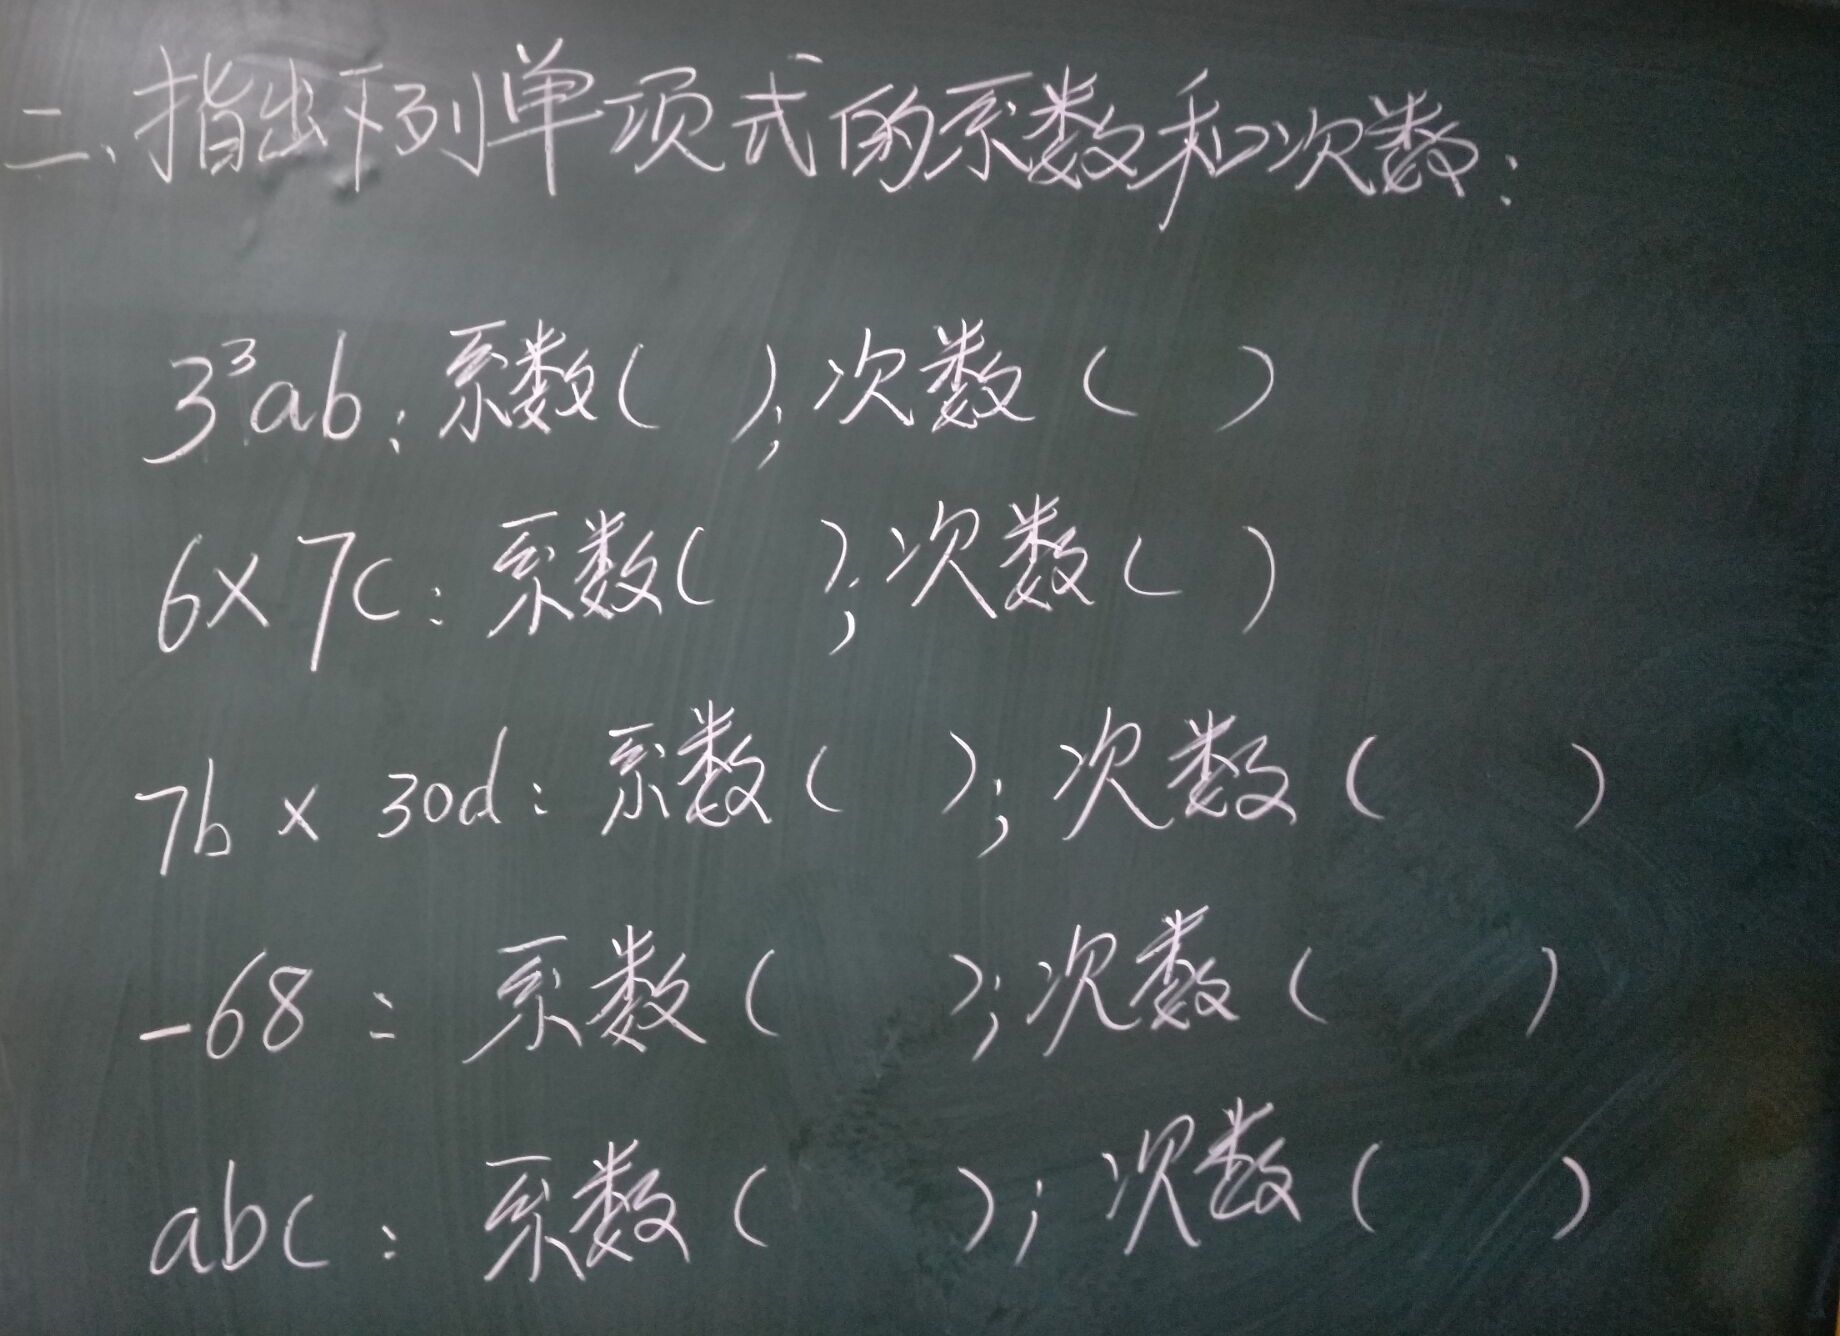 二、指出下列单项式的系数和次数：
3³ab：系数(  )；次数(  )
6×7c：系数(  )；次数(  )
7b × 30d：系数(  )；次数(  )
-68：系数(  )；次数(  )
abc：系数(  )；次数(  )